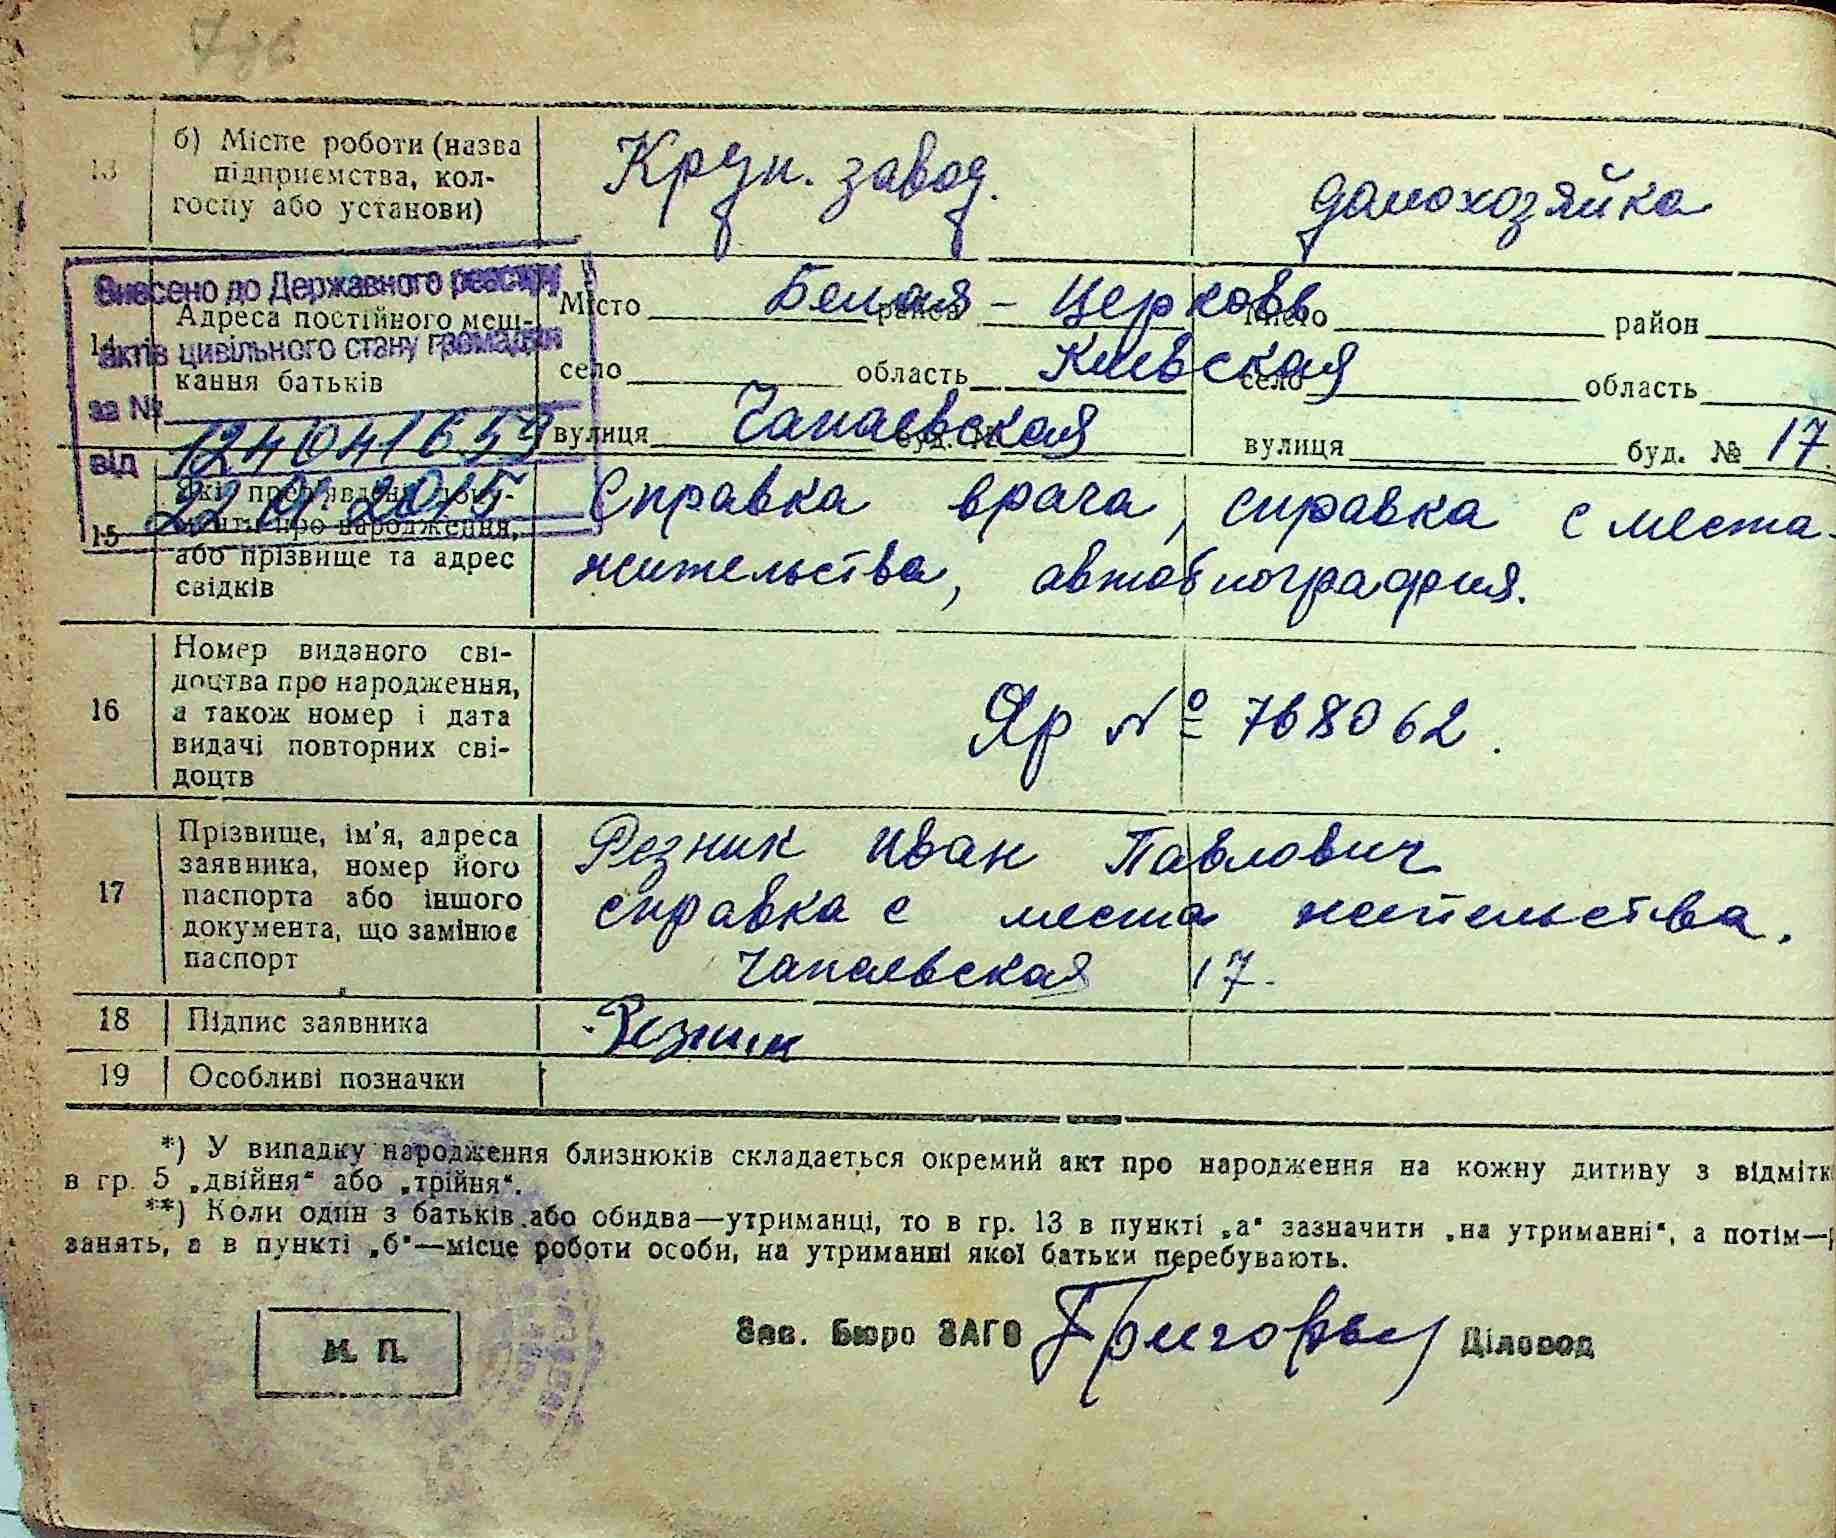 13 б) Місце роботи (назва підприємства, колгоспу або установи)
Круп. завод.
домохозяйка
Внесено до Державного реєстру
актів цивільного стану громадян
за № 124041659
від 22 01 2015
14 Адреса постійного мешкання батьків
Місто Белая - Церковь район Місто район
село область Киевская село область
вулиця Чапаевская буд. № вулиця буд. № 17
15 Які пред'явлені документи про народження, або прізвище та адрес свідків
Справка врача, справка с места
жительства, автобиография.
16 Номер виданого свідоцтва про народження, а також номер і дата видачі повторних свідоцтв
Яр № 768062.
17 Прізвище, ім'я, адреса заявника, номер його паспорта або іншого документа, що замінює паспорт
Резник Иван Павлович
справка с места жительства.
Чапаевская 17.
18 Підпис заявника Резник
19 Особливі позначки
*) У випадку народження близнюків складається окремий акт про народження на кожну дитину з відмітк
в гр. 5 „двійня“ або „трійня“.
**) Коли один з батьків або обидва—утриманці, то в гр. 13 в пункті „а“ зазначити „на утриманні“, а потім—
занять, а в пункті „б“—місце роботи особи, на утриманні якої батьки перебувають.
М. П.
Зав. Бюро ЗАГС Діловод